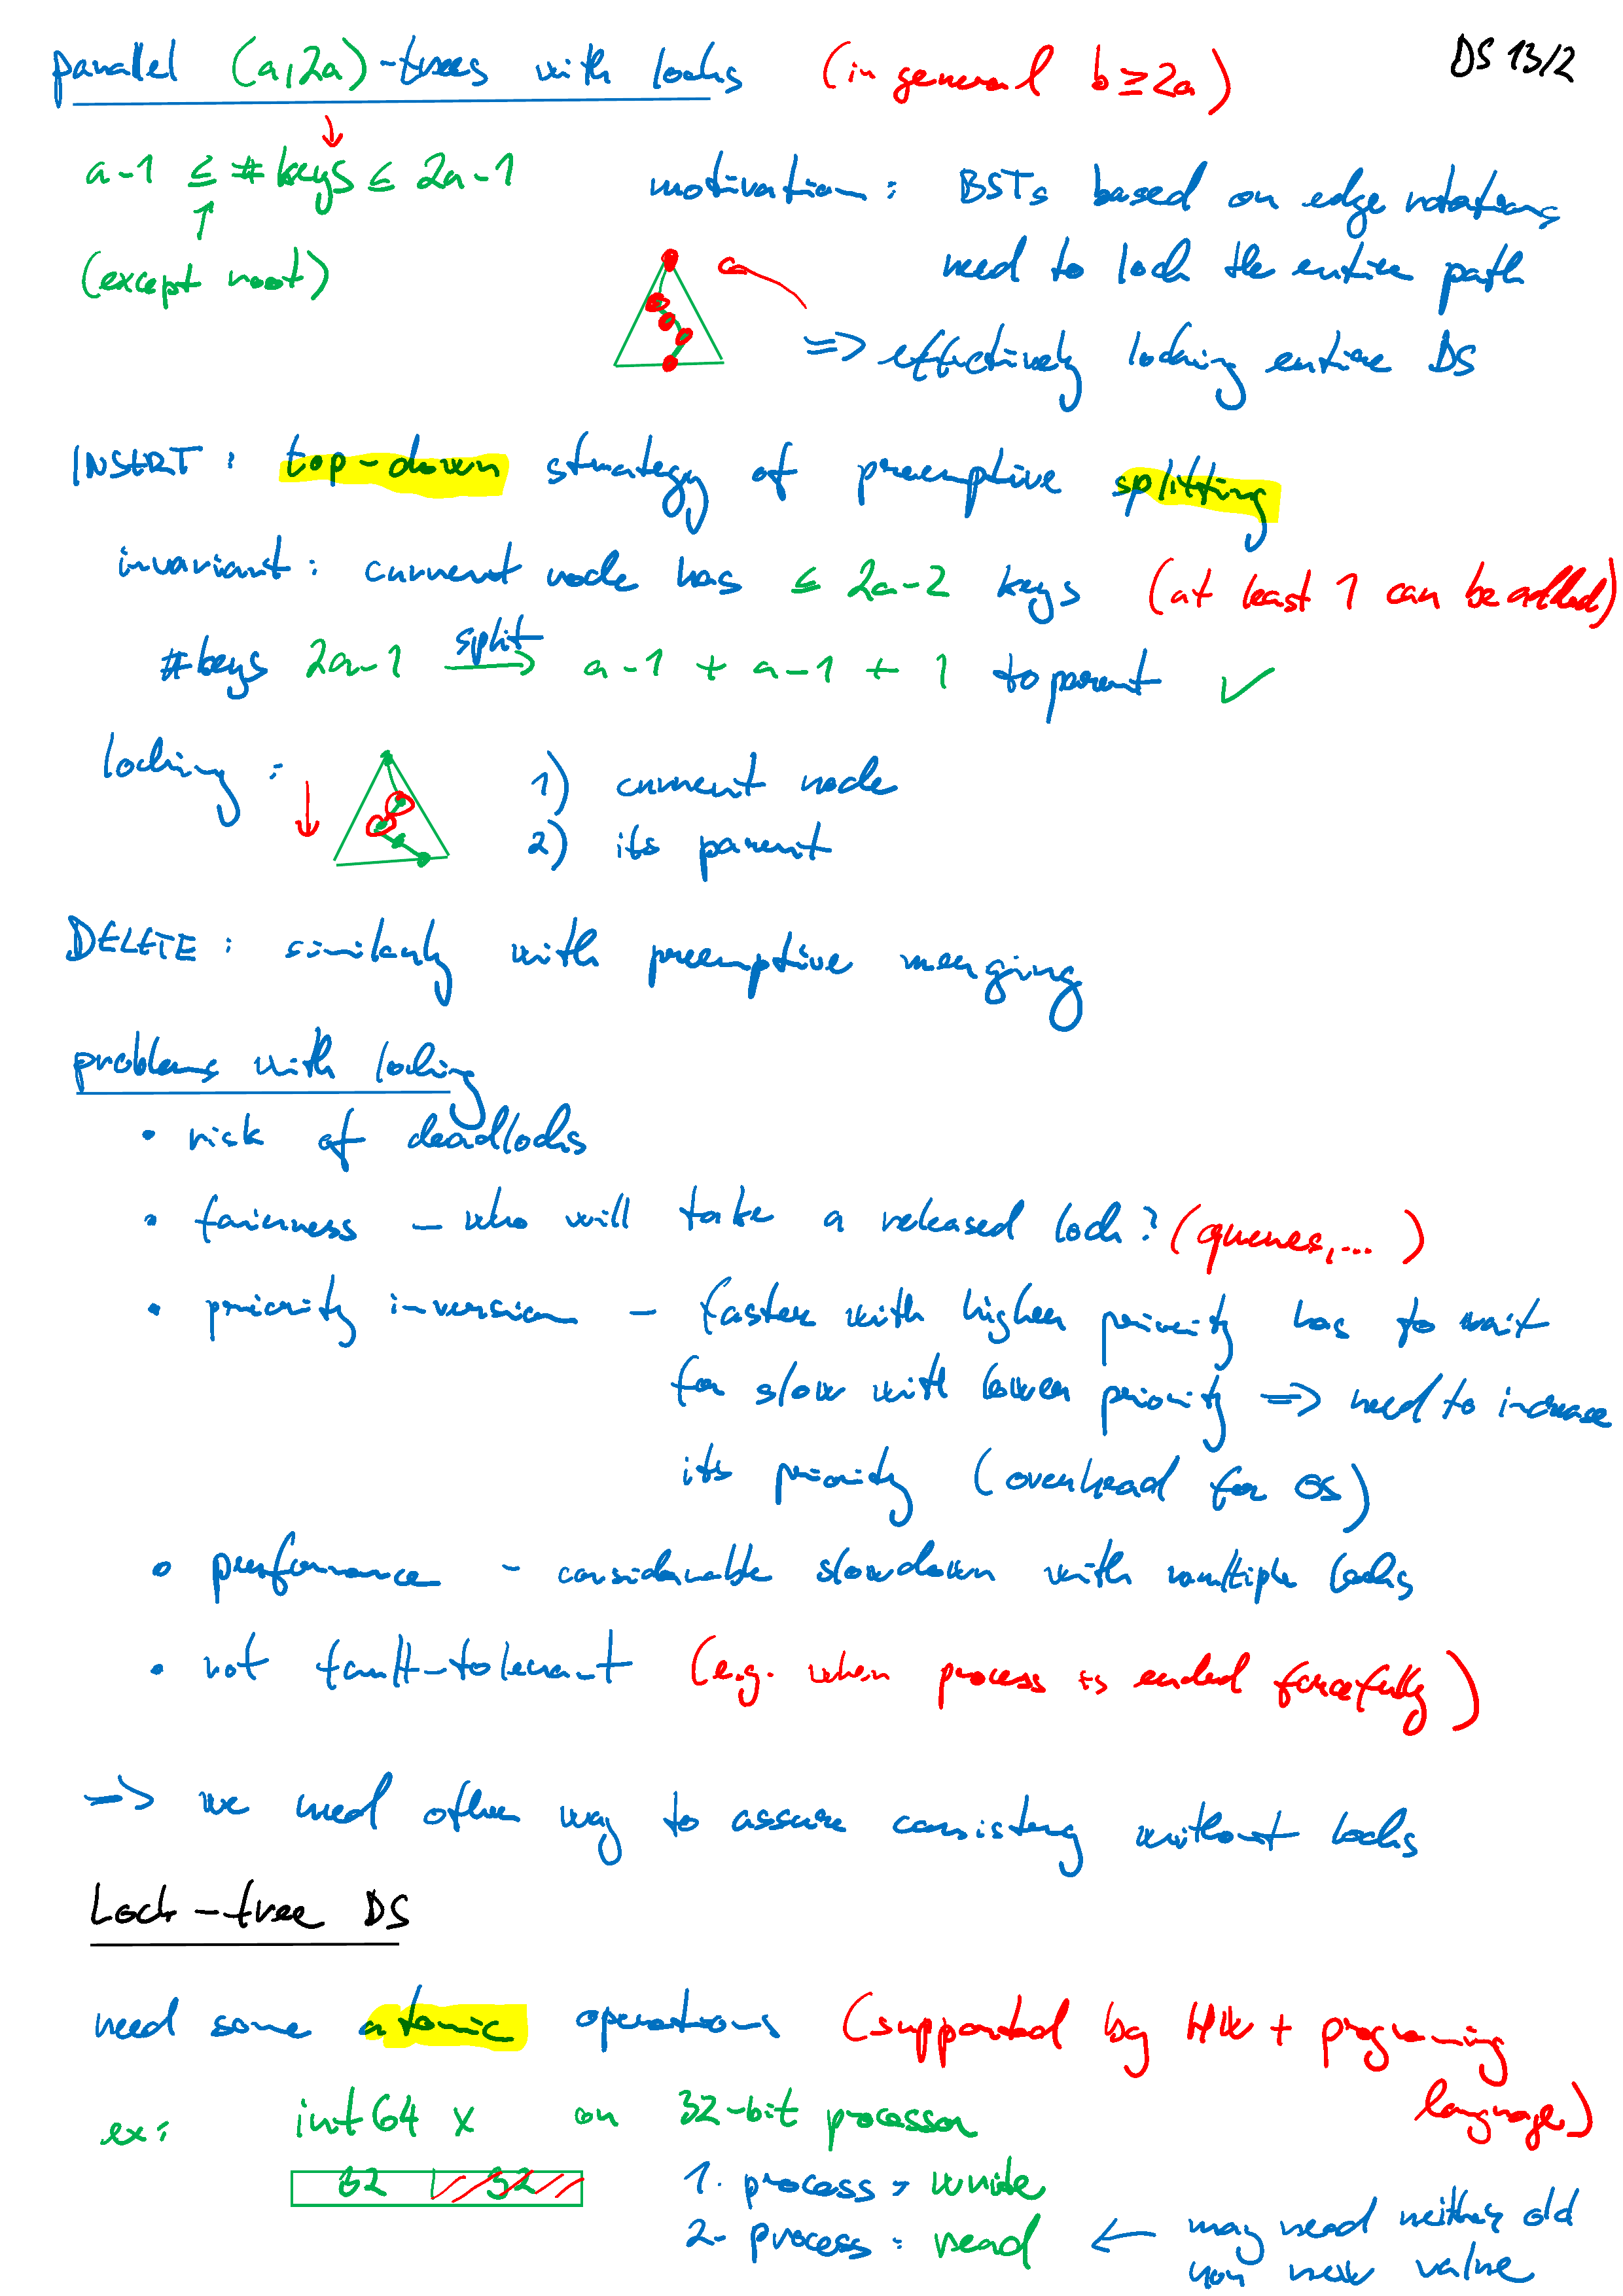 parallel (a,2a)-trees with locks (in general b ≥ 2a) DS 13/2
a-1 ≤ #keys ≤ 2a-1
(except root)
motivation: BSTs based on edge rotations
need to lock the entire path
=> effectively locking entire DS
INSERT: top-down strategy of preemptive splitting
invariant: current node has ≤ 2a-2 keys (at least 1 can be added)
#keys 2a-1 split→ a-1 + a-1 + 1 to parent ✓
locking:
1) current node
2) its parent
DELETE: similarly with preemptive merging
problems with locking
• risk of deadlocks
• fairness - who will take a released lock? (queues,...)
• priority inversion - faster with higher priority has to wait
for slow with lower priority => need to increase
its priority (overhead for OS)
• performance - considerable slowdown with multiple locks
• not fault-tolerant (e.g. when process is ended forcefully)
=> we need other way to assure consistency without locks
Lock-free DS
need some atomic operations (supported by HW + programing
language)
ex: int64 x on 32-bit processor
32 32
1. process: write
2. process: read ← may read neither old
nor new value